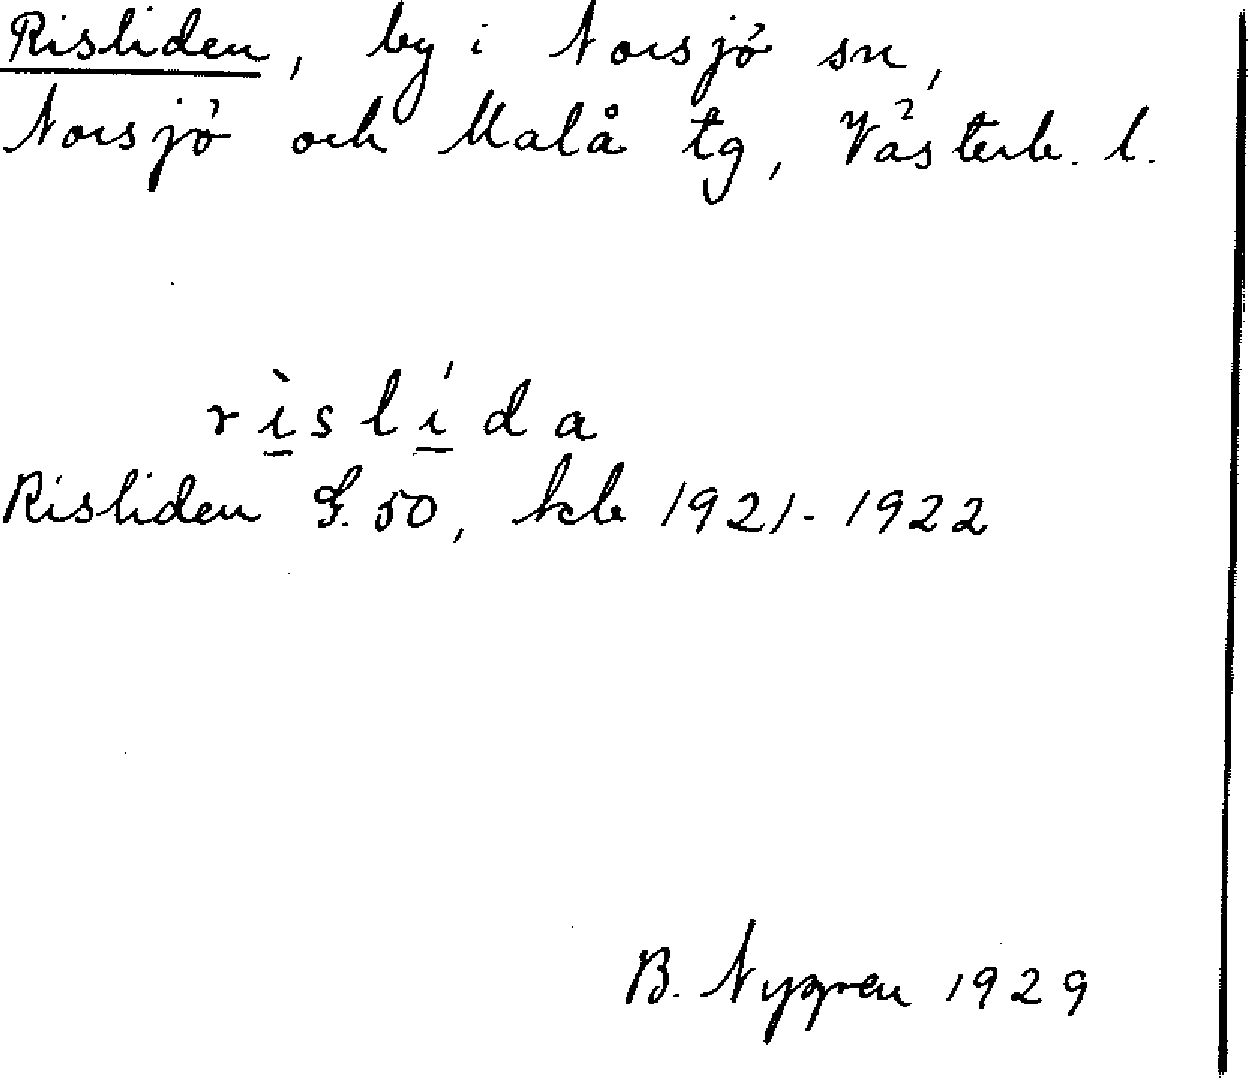 Risliden, by i Norsjö sn,
Norsjö och Malå tg, Västerb. l.
rı̲̀slı̲́da
Risliden S. 50, kb 1921-1922
B. Nygren 1929